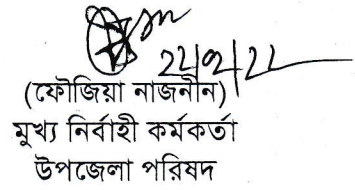 ২২/৭/২২
(ফৌজিয়া নাজনীন)
মুখ্য নির্বাহী কর্মকর্তা
উপজেলা পরিষদ